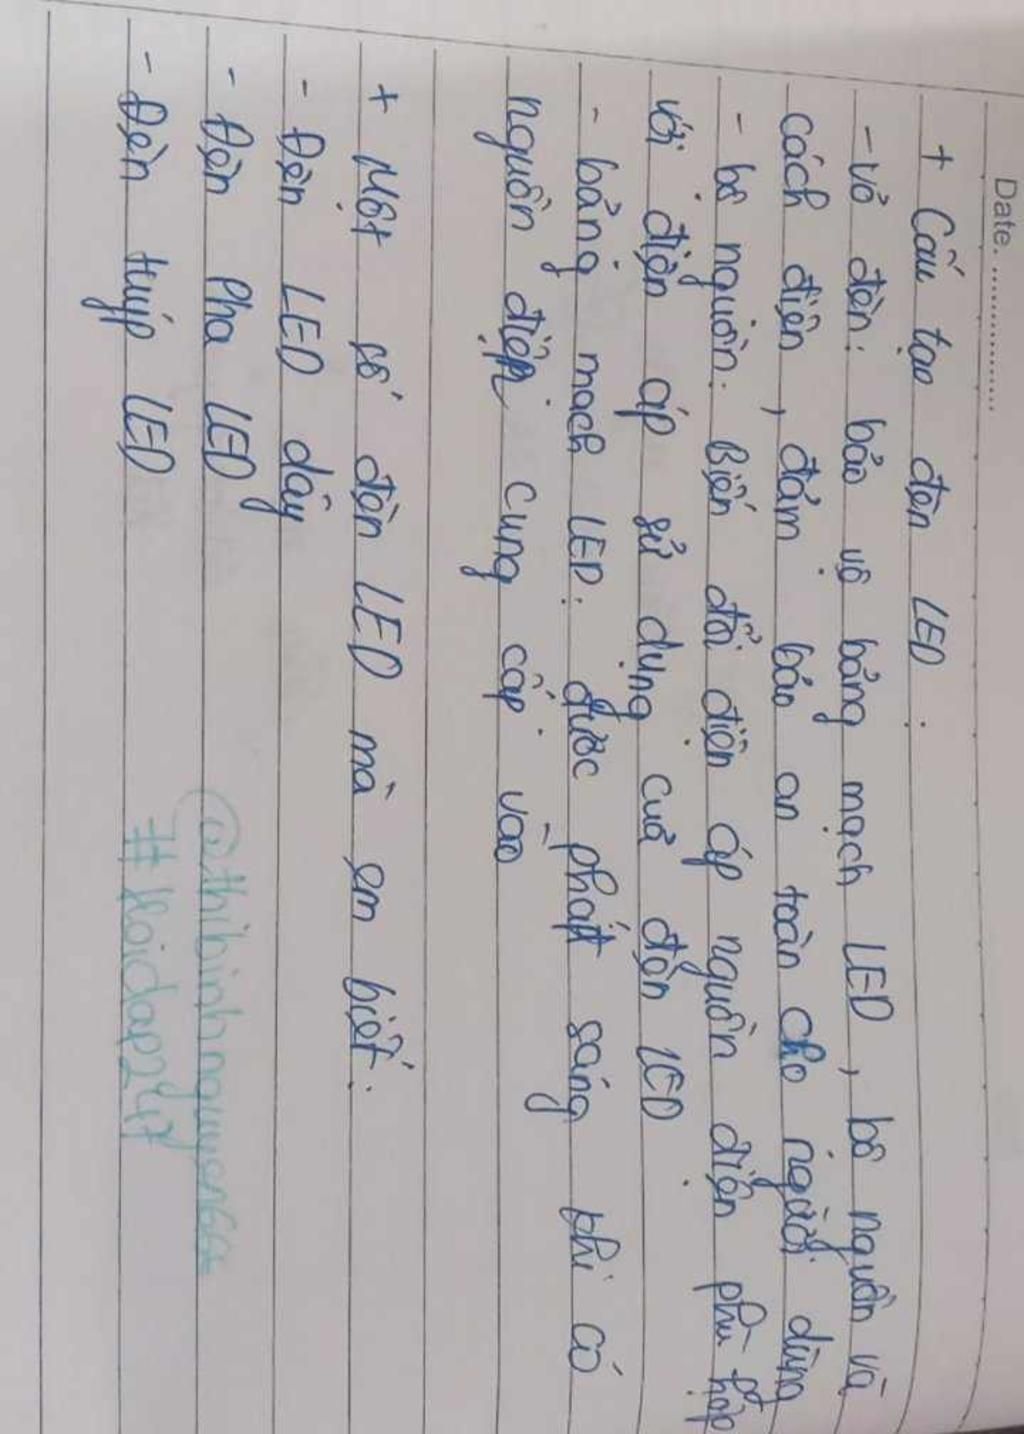 Date. ............
+ Cấu tạo đèn LED :
- Vỏ đèn: bảo vệ bảng mạch LED, bộ nguồn và
cách điện, đảm bảo an toàn cho người dùng
- bộ nguồn: Biến đổi điện áp nguồn điện phù hợp
với điện áp sử dụng của đèn LED
- bảng mạch LED: được phát sáng khi có
nguồn điện cung cấp vào
+ Một số đèn LED mà em biết:
- Đèn LED dây
- Đèn Pha LED
- Đèn tuýp LED
@thibinhnguyen664
#hoidap247